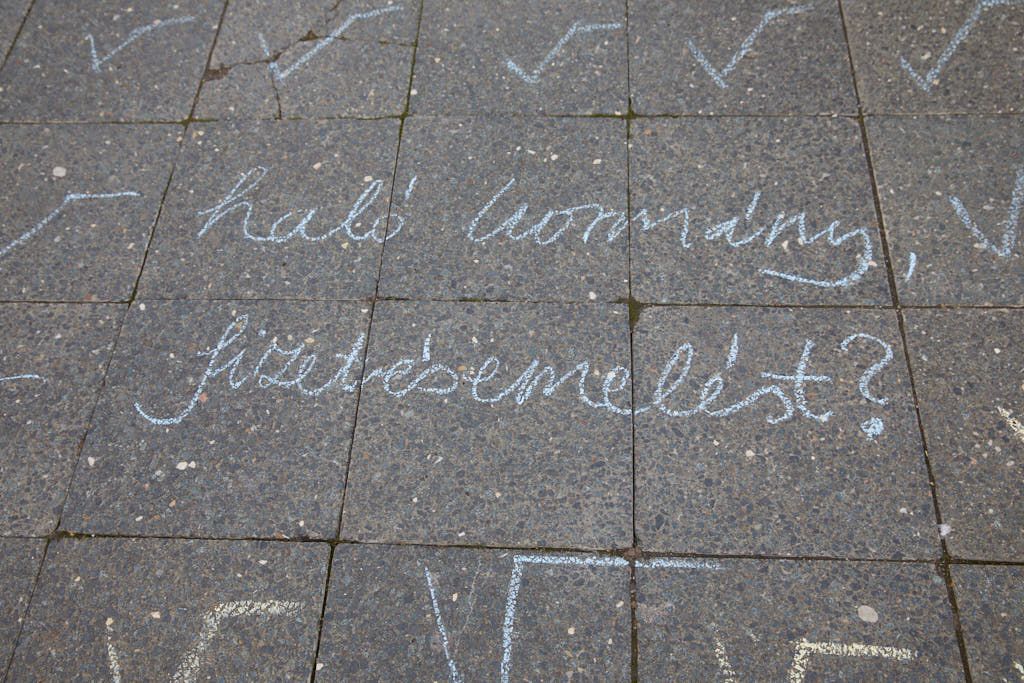 haló kormány,
fizetésemelést?